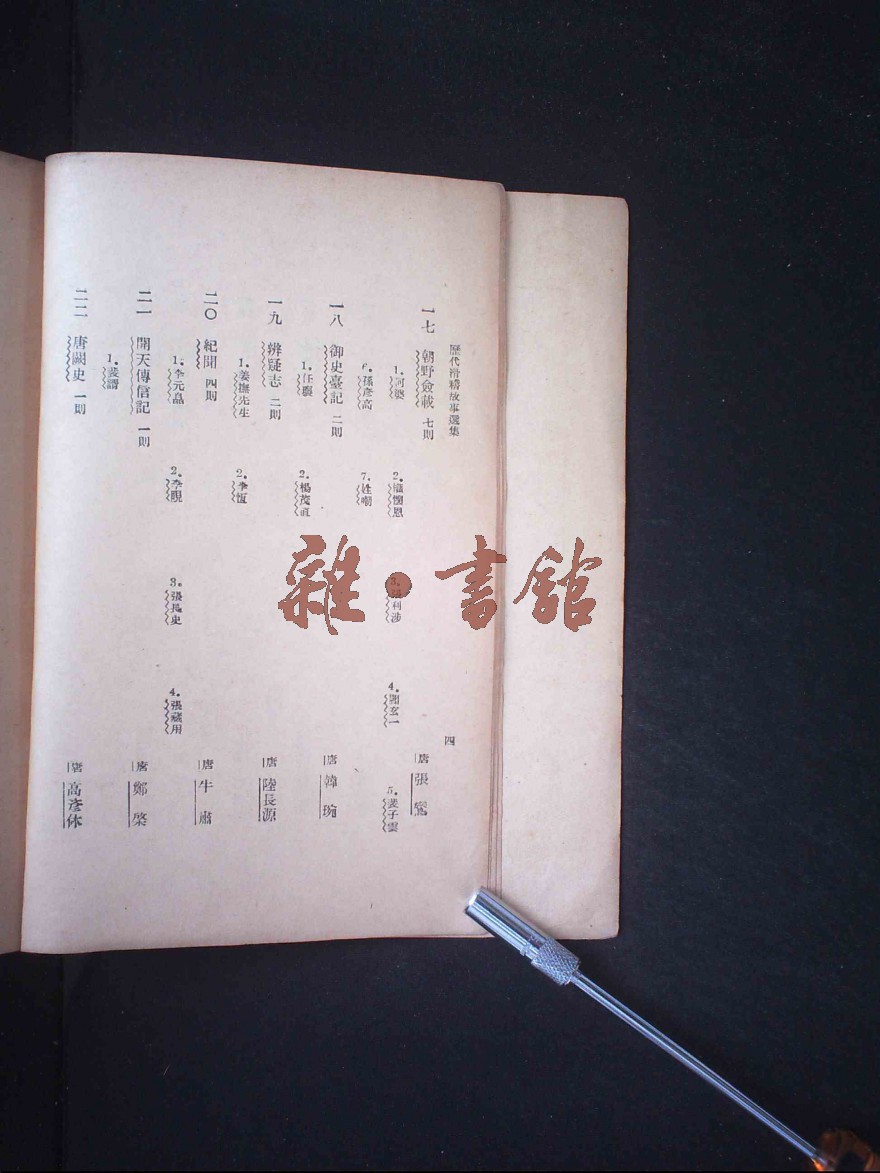 歷代滑稽故事選集
四
一七 朝野僉載 七則 唐 張鷟
1.阿婆 2.權懷恩 3.張利涉 4.閻玄一 5.裴子雲
6.孫彥高 7.姓嘲
一八 御史臺記 二則 唐 韓琬
1.任瓌 2.楊茂直
一九 辨疑志 二則 唐 陸長源
1.姜撫先生 2.李恆
二〇 紀聞 四則 唐 牛肅
1.李元皛 2.李睍 3.張長史 4.張藏用
二一 開天傳信記 一則 唐 鄭棨
1.裴諝
二二 唐闕史 一則 唐 高彥休
雜·書館